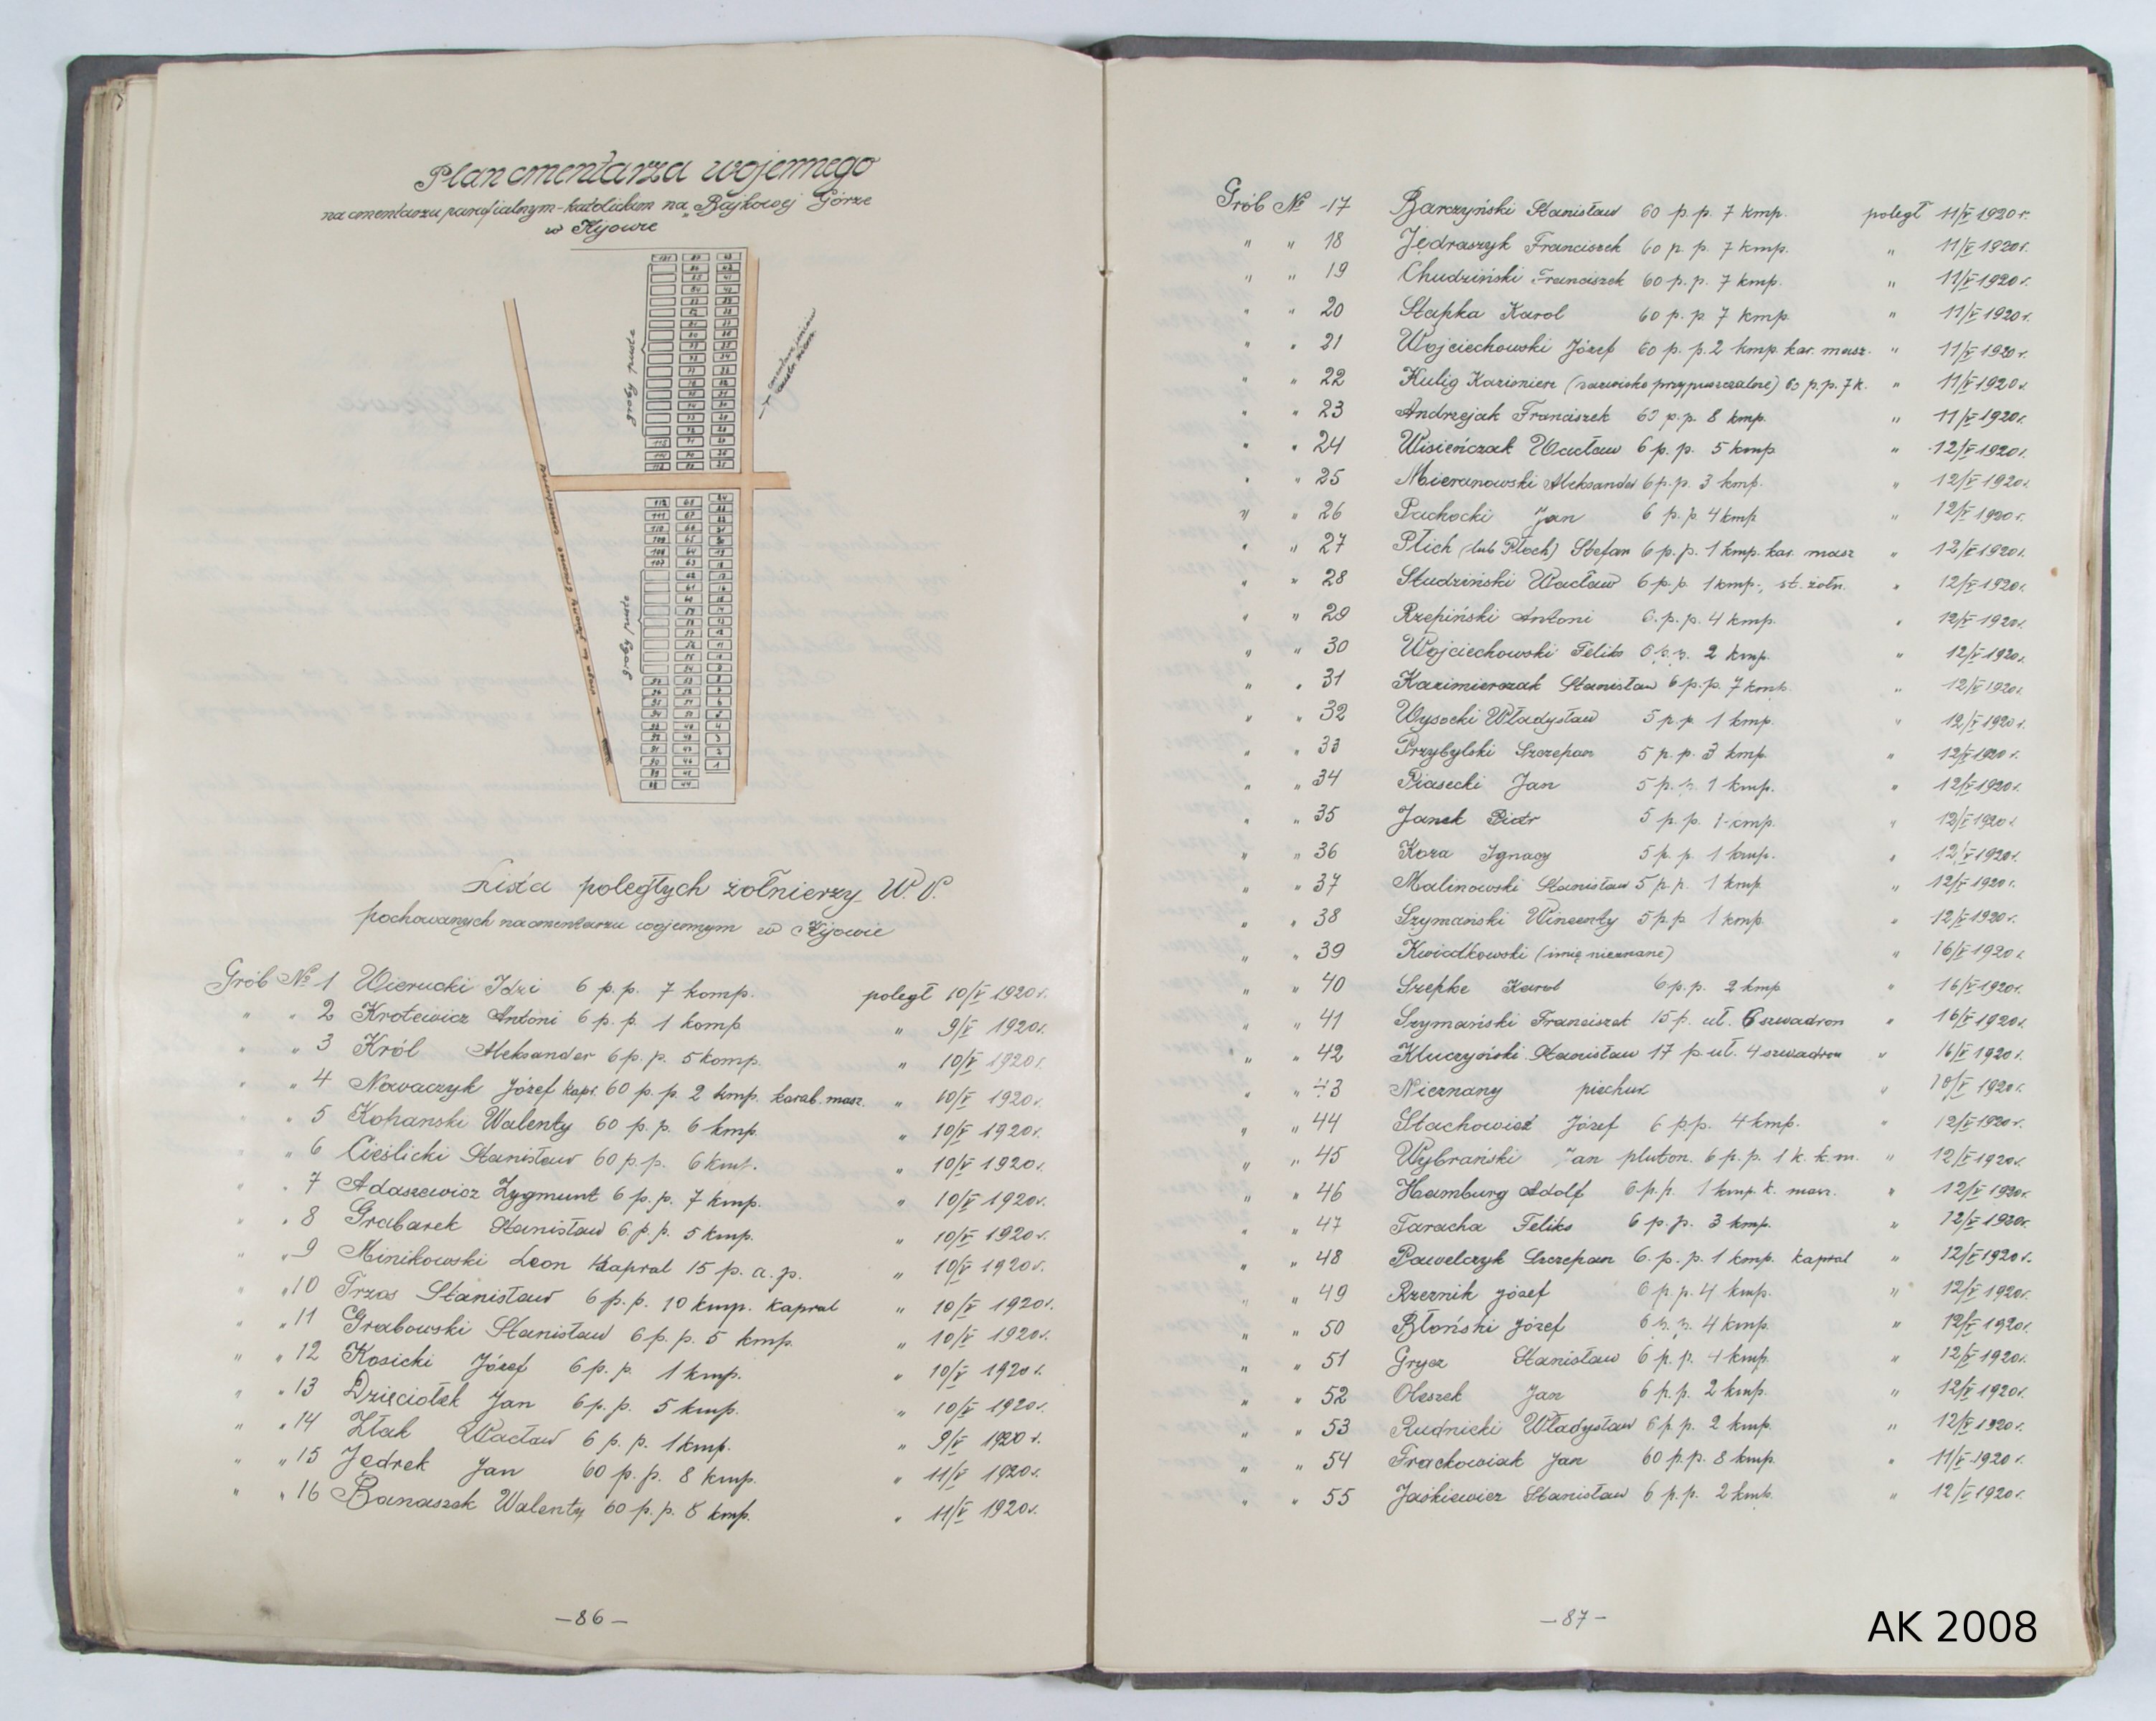 Plan cmentarza wojennego
na cmentarzu parafialnym-katolickim na "Bajkowej Górze
w Kijowie
groby puste
groby puste
Lista poległych żołnierzy W.P.
pochowanych na cmentarzu wojennym w Kijowie
Grób № 1 Wierucki Idzi 6 p.p. 7 komp. poległ 10/V 1920r.
" " 2 Krotewicz Antoni 6 p.p. 1 komp " 9/V 1920r.
" " 3 Król Aleksander 6 p.p. 5 komp. " 10/V 1920r.
" " 4 Nowaczyk Józef kapr. 60 p.p. 2 kmp. karab. masz. " 10/V 1920r.
" " 5 Kohanski Walenty 60 p.p. 6 kmp. " 10/V 1920r.
" " 6 Cieślicki Stanisław 60 p.p. 6 kmp. " 10/V 1920r.
" " 7 Adaszewicz Zygmunt 6 p.p. 7 kmp. " 10/V 1920r.
" " 8 Grabarek Stanisław 6 p.p. 5 kmp. " 10/V 1920r.
" " 9 Minikowski Leon kapral 15 p.a.p. " 10/V 1920r.
" " 10 Trzos Stanisław 6 p.p. 10 kmp. kapral " 10/V 1920r.
" " 11 Grabowski Stanisław 6 p.p. 5 kmp. " 10/V 1920r.
" " 12 Kosicki Józef 6 p.p. 1 kmp. " 10/V 1920r.
" " 13 Dzięciołek Jan 6 p.p. 5 kmp. " 10/V 1920r.
" " 14 Złak Wacław 6 p.p. 1 kmp. " 9/V 1920r.
" " 15 Jedrek Jan 60 p.p. 8 kmp. " 11/V 1920r.
" " 16 Banaszak Walenty 60 p.p. 8 kmp. " 11/V 1920r.
—86—
Grób № 17 Barczyński Stanisław 60 p.p. 7 kmp. poległ 11/V 1920r.
" " 18 Jędraszyk Franciszek 60 p.p. 7 kmp. " 11/V 1920r.
" " 19 Chudziński Franciszek 60 p.p. 7 kmp. " 11/V 1920r.
" " 20 Stapka Karol 60 p.p. 7 kmp. " 11/V 1920r.
" " 21 Wojciechowski Józef 60 p.p. 2 kmp. kar. masz. " 11/V 1920r.
" " 22 Kulig Kazimierz (nazwisko przypuszczalne) 60 p.p. 7 k. " 11/V 1920r.
" " 23 Andrzejak Franciszek 60 p.p. 8 kmp. " 11/V 1920r.
" " 24 Wisieńczak Wacław 6 p.p. 5 kmp. " 12/V 1920r.
" " 25 Mieranowski Aleksander 6 p.p. 3 kmp. " 12/V 1920r.
" " 26 Puchocki Jan 6 p.p. 4 kmp. " 12/V 1920r.
" " 27 Plich (lub Ploch) Stefan 6 p.p. 1 kmp. kar. masz " 12/V 1920r.
" " 28 Studziński Wacław 6 p.p. 1 kmp., st. żołn. " 12/V 1920r.
" " 29 Rzepiński Antoni 6 p.p. 4 kmp. " 12/V 1920r.
" " 30 Wojciechowski Feliks 6 p.p. 2 kmp. " 12/V 1920r.
" " 31 Kazimierczak Stanisław 6 p.p. 7 kmp. " 12/V 1920r.
" " 32 Wysocki Władysław 5 p.p. 1 kmp. " 12/V 1920r.
" " 33 Przybylski Szczepan 5 p.p. 3 kmp. " 12/V 1920r.
" " 34 Piasecki Jan 5 p.p. 1 kmp. " 12/V 1920r.
" " 35 Janek Piotr 5 p.p. 1 kmp. " 12/V 1920r.
" " 36 Koza Ignacy 5 p.p. 1 kmp. " 12/V 1920r.
" " 37 Malinowski Stanisław 5 p.p. 1 kmp. " 12/V 1920r.
" " 38 Szymański Wincenty 5 p.p. 1 kmp. " 12/V 1920r.
" " 39 Kwiatkowski (imię nieznane) " 16/V 1920r.
" " 40 Szepke Karol 6 p.p. 2 kmp " 16/V 1920r.
" " 41 Szymański Franciszek 15 p. uł. 6 szwadron " 16/V 1920r.
" " 42 Kluczyński Stanisław 17 p. uł. 4 szwadron " 16/V 1920r.
" " 43 Nieznany piechur " 10/V 1920r.
" " 44 Stachowicz Józef 6 p.p. 4 kmp. " 12/V 1920r.
" " 45 Wybrański Jan pluton. 6 p.p. 1 k. k.m. " 12/V 1920r.
" " 46 Hamburg Adolf 6 p.p. 1 kmp. k. masz. " 12/V 1920r.
" " 47 Taracha Feliks 6 p.p. 3 kmp. " 12/V 1920r.
" " 48 Pawelczyk Szczepan 6 p.p. 1 kmp. kapral " 12/V 1920r.
" " 49 Rzeznik Józef 6 p.p. 4 kmp. " 12/V 1920r.
" " 50 Błoński Józef 6 p.p. 4 kmp. " 12/V 1920r.
" " 51 Grycz Stanisław 6 p.p. 4 kmp. " 12/V 1920r.
" " 52 Oleszek Jan 6 p.p. 2 kmp. " 12/V 1920r.
" " 53 Rudnicki Władysław 6 p.p. 2 kmp. " 12/V 1920r.
" " 54 Frackowiak Jan 60 p.p. 8 kmp. " 11/V 1920r.
" " 55 Jaśkiewicz Stanisław 6 p.p. 2 kmp. " 12/V 1920r.
—87—
AK 2008